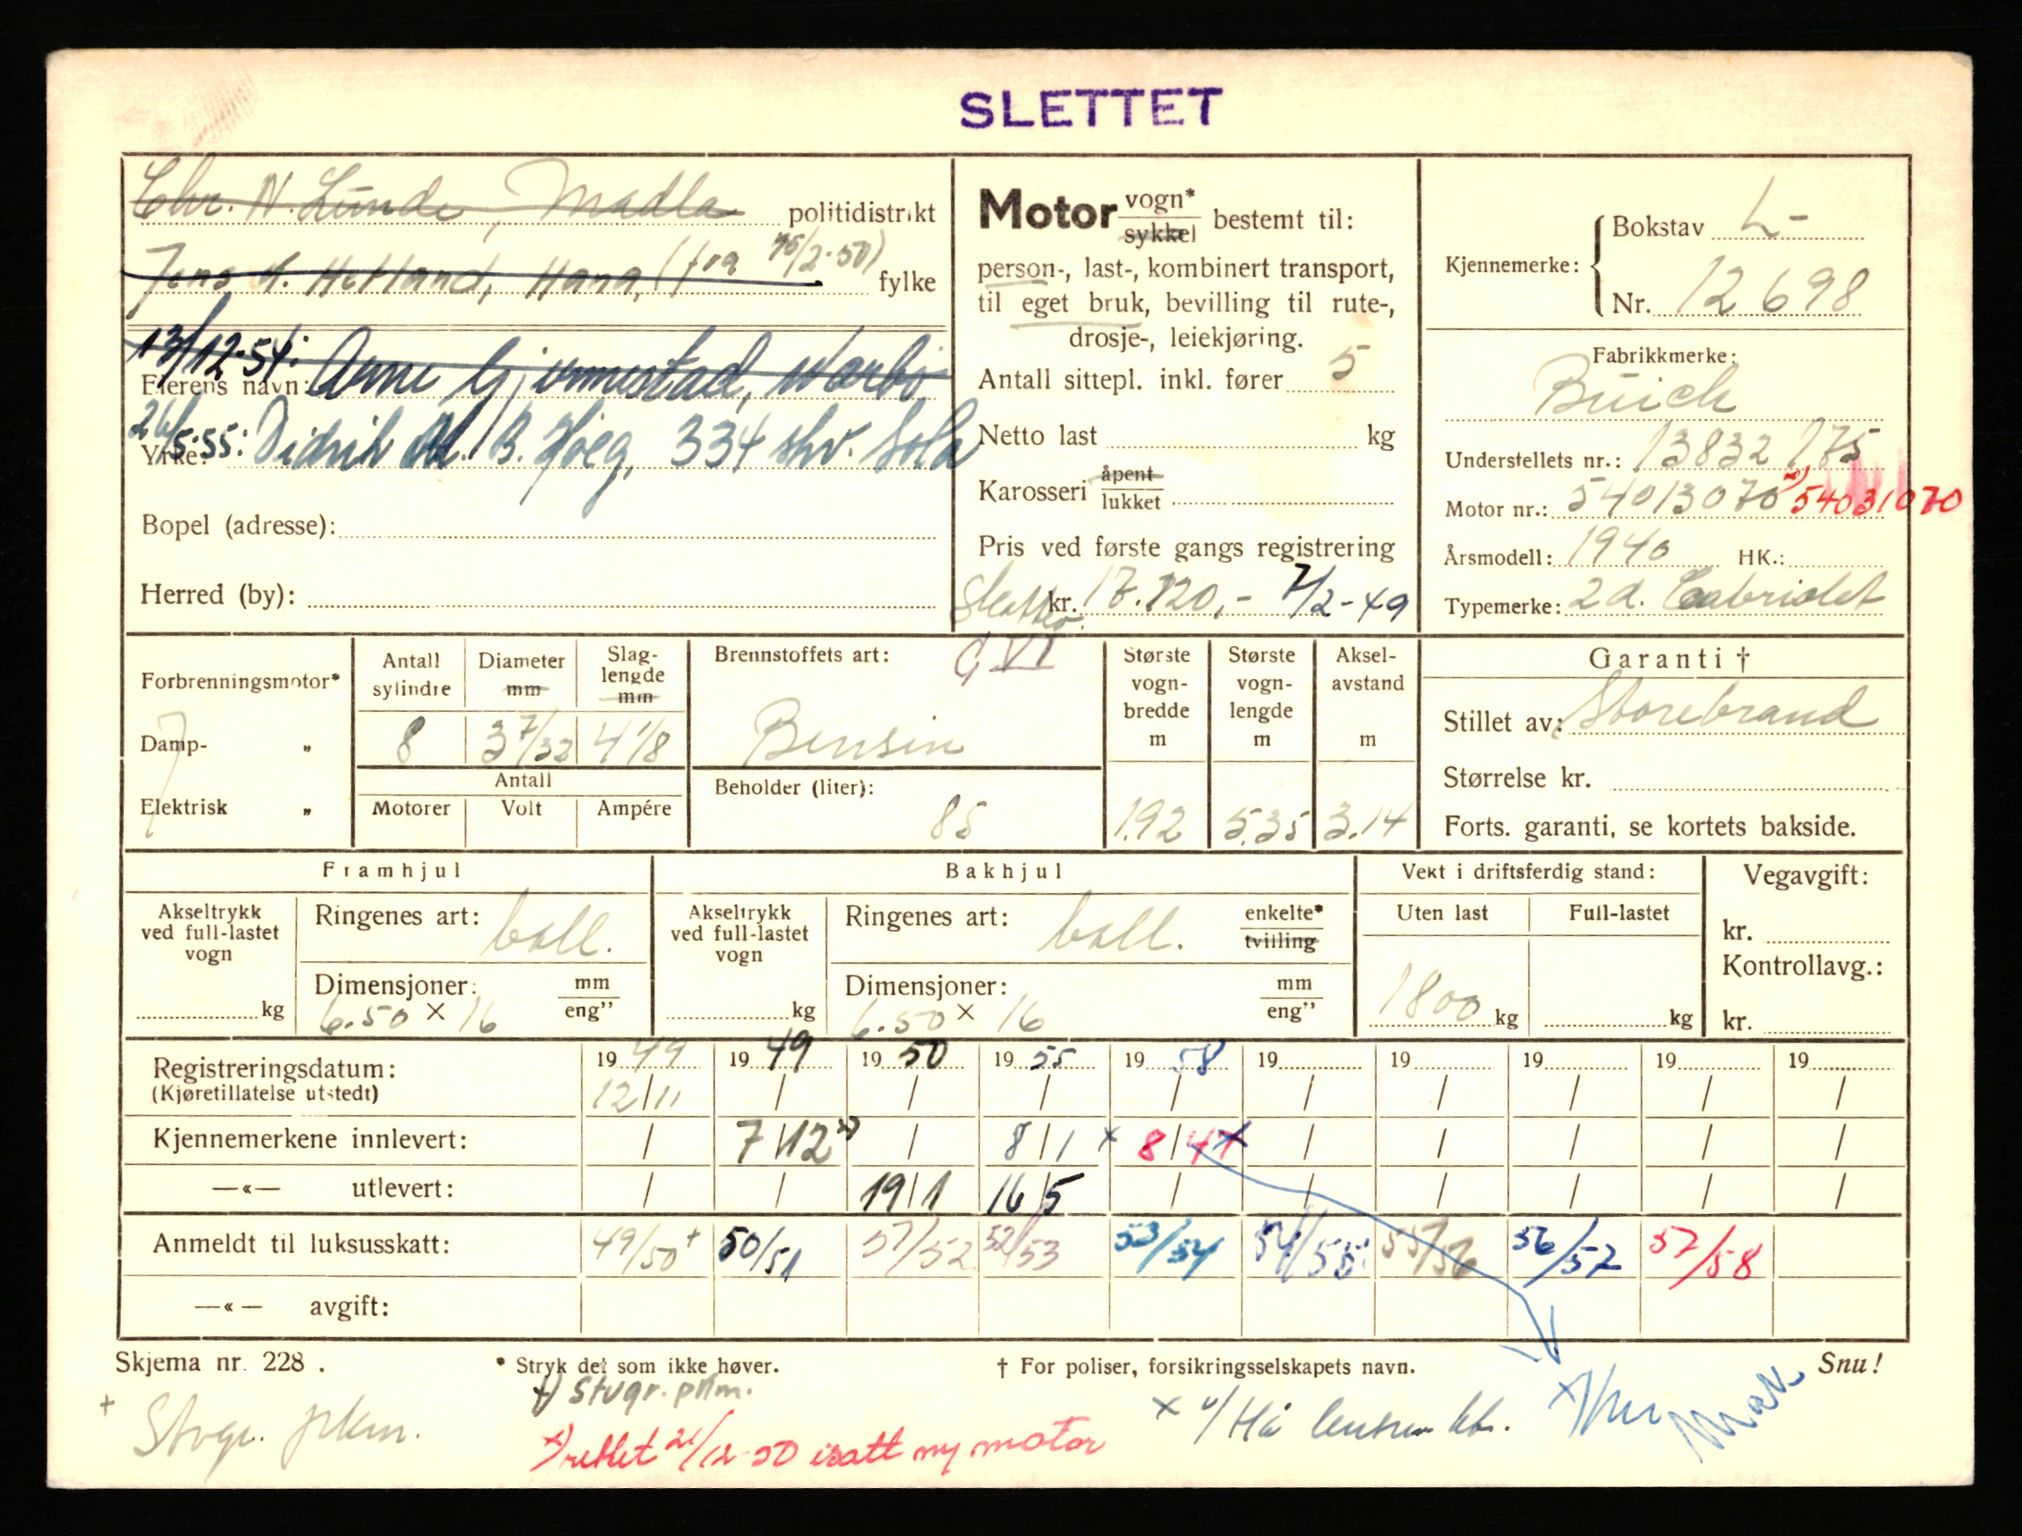 SLETTET
Chr. N. Lunde, Madla politidistrikt
Jens A. Hetland, Hana, (fra 15/2-50) fylke
13/12-54:
Eierens navn: Arne Gjermestad, Nærbø
26/5-55: Didrik M. B. Høeg, 334 skv. Sola
Yrke:
Bopel (adresse):
Herred (by):
Motor vogn* sykkel bestemt til:
person-, last-, kombinert transport,
til eget bruk, bevilling til rute-,
drosje-, leiekjøring.
Antall sittepl. inkl. fører 5
Netto last kg
Karosseri åpent lukket
Pris ved første gangs registrering
kr. 17.120,- 7/2-49
Kjennemerke: Bokstav L-
Nr. 12698
Fabrikkmerke:
Buick
Understellets nr.: 13832775
Motor nr.: 54013070 x) 54031070
Årsmodell: 1940 HK.:
Typemerke: 2d. Cabriolet
Forbrenningsmotor*
Damp- „
Elektrisk „
Antall sylindre 8
Diameter mm 3 7/32
Slaglengde mm 4 1/8
Antall
Motorer Volt Ampére
Brennstoffets art: G VI
Bensin
Beholder (liter):
85
Største vogn-bredde m 1.92
Største vogn-lengde m 5.35
Aksel-avstand m 3.14
Garanti †
Stillet av: Storebrand
Størrelse kr.
Forts. garanti, se kortets bakside.
Framhjul
Akseltrykk ved full-lastet vogn kg
Ringenes art: ball.
Dimensjoner: mm eng”
6.50 × 16
Bakhjul
Akseltrykk ved full-lastet vogn kg
Ringenes art: ball. enkelte* tvilling
Dimensjoner: mm eng”
6.50 × 16
Vekt i driftsferdig stand:
Uten last Full-lastet
1800 kg kg
Vegavgift:
kr.
Kontrollavg.:
kr.
Registreringsdatum: 1949 1949 1950 1955 1958 19 19 19 19 19
(Kjøretillatelse utstedt) 12/11 / / / / / / / / /
Kjennemerkene innlevert: / 7/12 / 8/1 x 8/4 / / / / /
—«— utlevert: / / 19/1 16/5 / / / / / /
Anmeldt til luksusskatt: 49/50+ 50/51 51/52 52/53 53/54 54/55 55/56 56/57 57/58
—«— avgift:
Skjema nr. 228. * Stryk det som ikke høver. † For poliser, forsikringsselskapets navn. Snu!
+ Stvgr. pkm.
+) Stvgr. pkm.
x) rettet 21/12-50 isatt ny motor
x v/ Hå